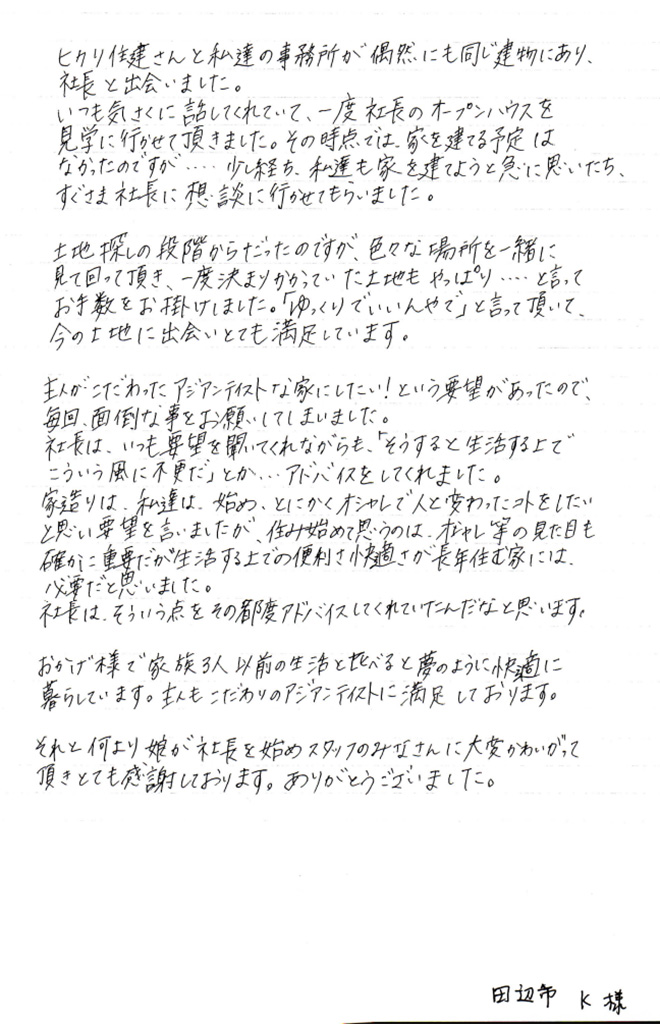 ヒカリ住建さんと私達の事務所が偶然にも同じ建物にあり、
社長と出会いました。
いつも気さくに話してくれていて、一度社長のオープンハウスを
見学に行かせて頂きました。その時点では、家を建てる予定は
なかったのですが‥‥少し経ち、私達も家を建てようと急に思いたち、
すぐさま社長に想談に行かせてもらいました。
土地探しの段階からだったのですが、色々な場所を一緒に
見て回って頂き、一度決まりかかっていた土地もやっぱり‥‥と言って
お手数をお掛けしました。「ゆっくりでいいんやで」と言って頂いて、
今の土地に出会いとても満足しています。
主人がこだわったアジアンテイストな家にしたい!という要望があったので、
毎回、面倒な事をお願いしてしまいました。
社長は、いつも要望を聞いてくれながらも、「そうすると生活する上で
こういう風に不便だ」とか‥‥アドバイスをしてくれました。
家造りは、私達は、始め、とにかくオシャレで人と変わったコトをしたい
と思い要望を言いましたが、住み始めて思うのは、オシャレ等の見た目も
確かに重要だが生活する上での便利さ快適さが長年住む家には、
必要だと思いました。
社長は、そういう点をその都度アドバイスしてくれていたんだなと思います。
おかげ様で家族3人以前の生活と比べると夢のように快適に
暮らしています。主人もこだわりのアジアンテイストに満足しております。
それと何より娘が社長を始めスタッフのみなさんに大変かわいがって
頂きとても感謝しております。ありがとうございました。
田辺市 K様